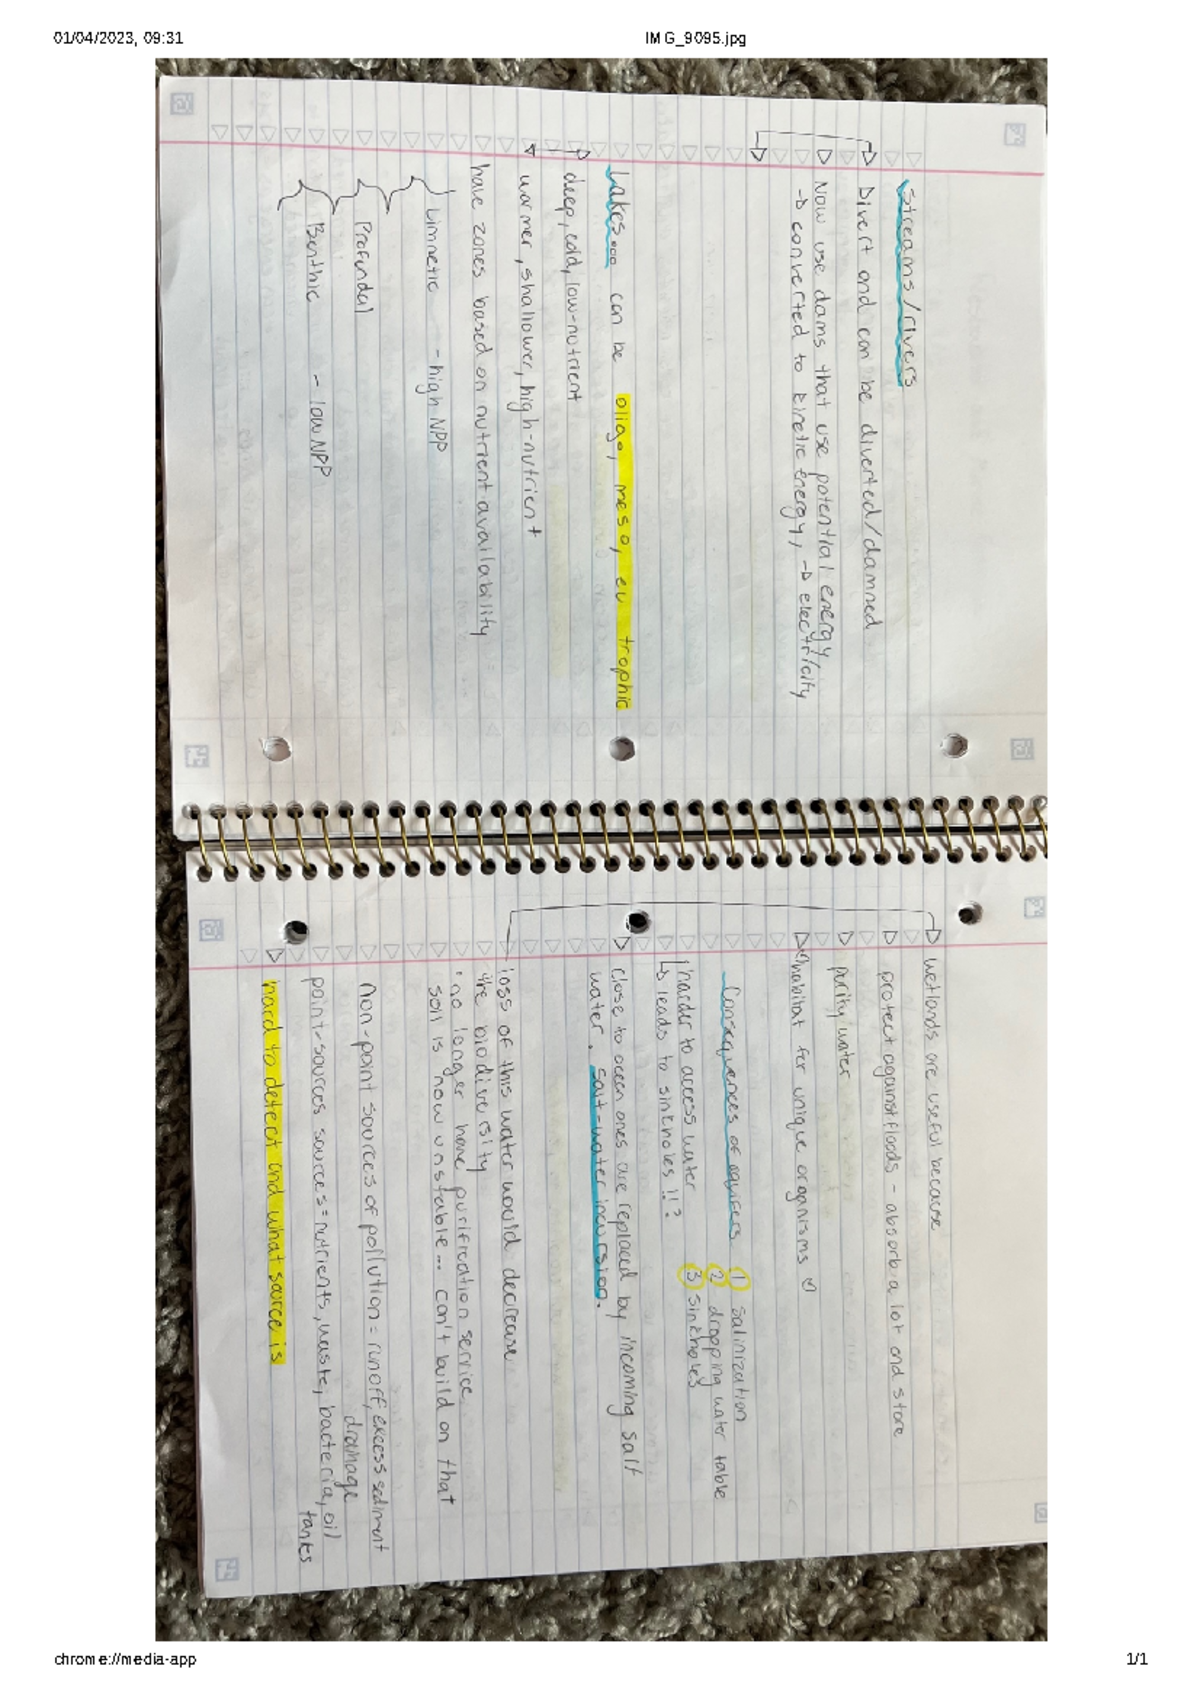 01/04/2023, 09:31
IMG_9095.jpg
Streams/rivers
Divert and can be diverted/damned
Now use dams that use potential energy
→ converted to kinetic energy, → electricity
Lakes... can be oligo, meso, eu trophic
deep, cold, low-nutrient
warmer, shallower, high-nutrient
have zones based on nutrient availability
Limnetic - high NPP
Profundal
Benthic - low NPP
wetlands are useful because
protect against floods - absorb a lot and store
purify water
habitat for unique organisms ♡
Consequences of aquifers ① salinization
② dropping water table
harder to access water ③ sinkholes
↳ leads to sinkholes !!?
close to ocean ones are replaced by incoming salt
water. salt-water incursion.
loss of this water would decrease
the biodiversity
• no longer have purification service
soil is now unstable... can't build on that
non-point sources of pollution = runoff, excess sediment
drainage
point-sources sources = nutrients, waste, bacteria, oil
tanks
hard to detect and what source is
chrome://media-app
1/1